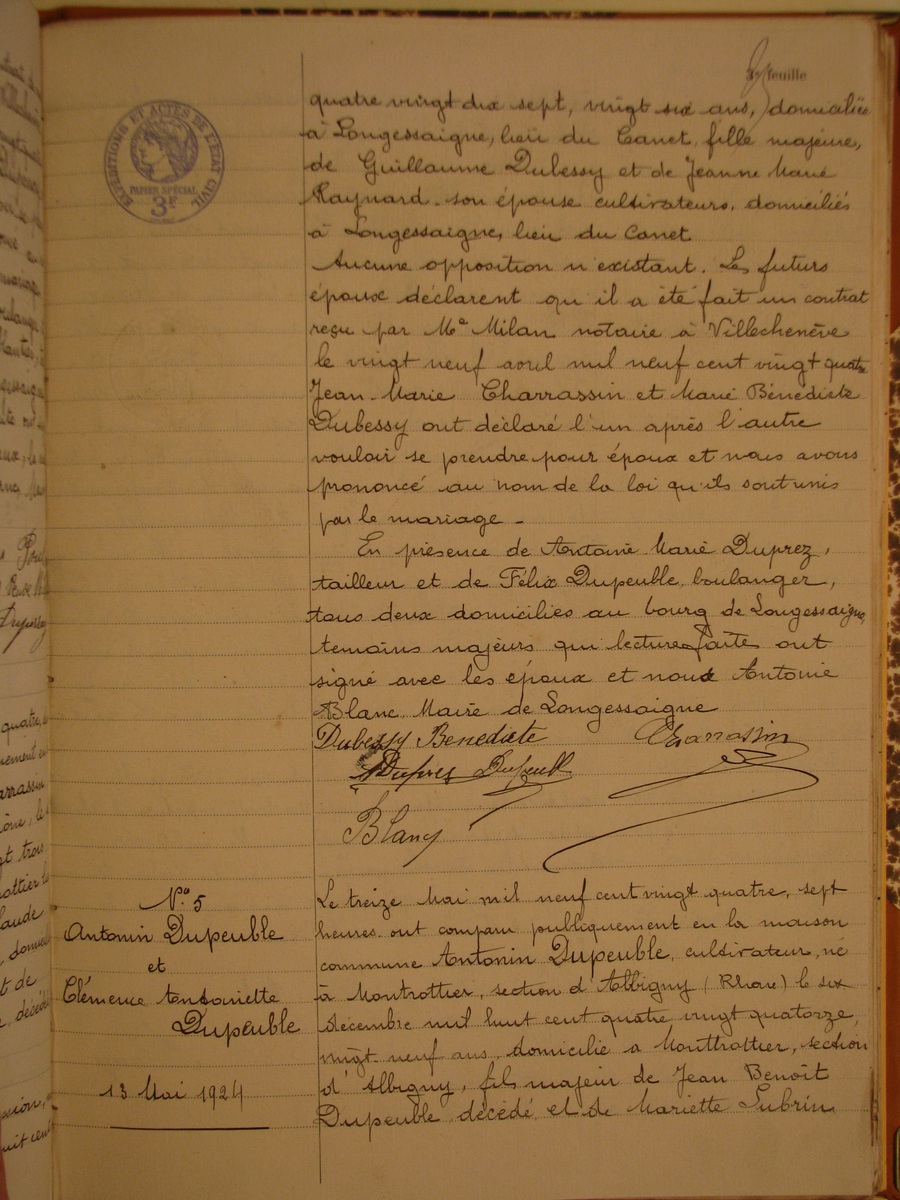 feuille
EXPÉDITIONS ET ACTES DE L'ETAT CIVIL
PAPIER SPÉCIAL
quatre vingt dix sept, vingt six ans, domiciliée
à Longessaigne, lieu du Canet, fille majeure,
de Guillaume Dubessy et de Jeanne Marie
Raynard son épouse cultivateurs, domiciliés
à Longessaigne, lieu du Canet
Aucune opposition n'existant. Les futurs
époux déclarent qu'il a été fait un contrat
reçu par Me Milan notaire à Villechenève
le vingt neuf avril mil neuf cent vingt quatre
Jean-Marie Charrassin et Marie Bénédicte
Dubessy ont déclaré l'un après l'autre
vouloir se prendre pour époux et nous avons
prononcé au nom de la loi qu'ils sont unis
par le mariage -
En présence de Antoine Marie Duprez,
tailleur et de Félix Dupeuble, boulanger,
tous deux domiciliés au bourg de Longessaigne,
temoins majeurs qui lecture faite ont
signé avec les époux et nous Antoine
Blanc Maire de Longessaigne
Dubessy Benedicte Charrassin
Duprez Dupeuble
Blanc
No 5
Antonin Dupeuble
et
Clémence Antoinette
Dupeuble
13 Mai 1924
Le treize Mai mil neuf cent vingt quatre, sept
heures ont comparu publiquement en la maison
commune Antonin Dupeuble, cultivateur, né
à Montrottier, section d'Albigny (Rhône) le six
décembre mil huit cent quatre vingt quatorze,
vingt neuf ans, domicilié à Montrottier, section
d'Albigny, fils majeur de Jean Benoît
Dupeuble décédé et de Mariette Subrin